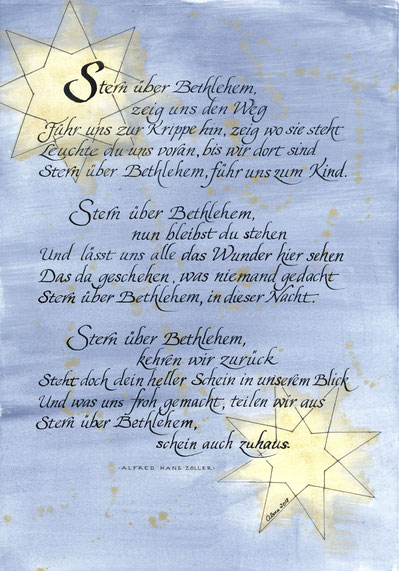 Stern über Bethlehem,
zeig uns den Weg
Führ uns zur Krippe hin, zeig wo sie steht
Leuchte du uns voran, bis wir dort sind
Stern über Bethlehem, führ uns zum Kind.
Stern über Bethlehem,
nun bleibst du stehen
Und lässt uns alle das Wunder hier sehen
Das da geschehen, was niemand gedacht
Stern über Bethlehem, in dieser Nacht.
Stern über Bethlehem,
kehren wir zurück
Steht doch dein heller Schein in unserem Blick
Und was uns froh gemacht, teilen wir aus
Stern über Bethlehem,
schein auch zuhaus.
·ALFRED HANS ZOLLER·